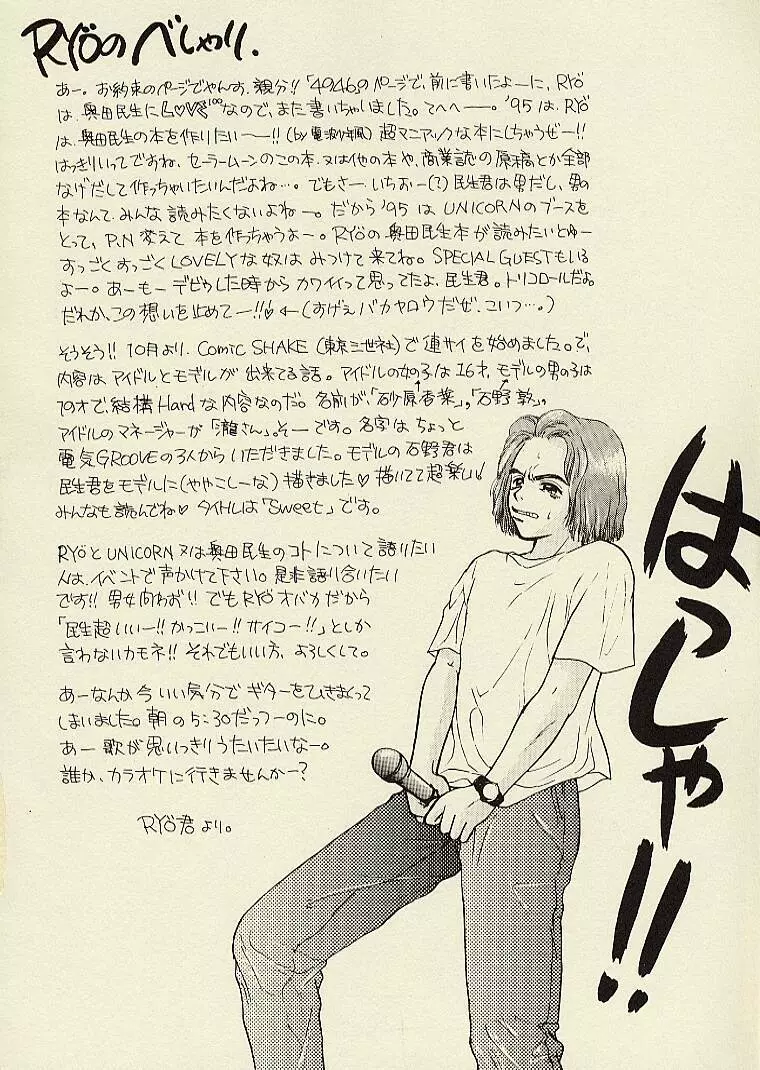 RYÖのべしゃり.
あー。お約束のページでやんす、親分!!「4946」のページで、前に書いたよーに、RYÖ
は、奥田民生にLOVE¹⁰⁰なので、また書いちゃいました。てへへー。'95は、RYÖ
は、奥田民生の本を作りたいー!!(by電波少年風)超マニアックな本にしちゃうぜー!!
はっきりいってですね、セーラームーンのこの本、又は他の本や、商業誌の原稿とか全部
なげだして作っちゃいたいんだよね…。でもさー、いちおー(?)民生君は男だし、男の
本なんて、みんな読みたくないよねー。だから'95はUNICORNのブースを
とって、P.N変えて本を作っちゃうよー。RYÖの奥田民生本が読みたいとゆー
すっごくすっごくLOVELYな奴はみつけて来てね。SPECIAL GUESTもいる
よー。あーもーデビゥした時からカワイイって思ってたよ、民生君。トリコロールだよ。
だれか、この想いを止めてー!!♡←(すげえバカヤロウだぜ、こいつ…。)
そうそう!!10月より、Comic SHAKE(東京三世社)で連サイを始めました。で、
内容はアイドルとモデルが出来てる話。アイドルの女の子は16才、モデルの男の子は
19才で、結構Hardな内容なのだ。名前が、「砂原香菜」。「石野 敦」。
アイドルのマネージャーが「瀧さん」。そーです。名字はちょっと
電気GROOVEの3人からいただきました。モデルの石野君は
民生君をモデルに(ややこしーな)描きました♡描いてて超楽しい!
みんなも読んでね♡タイトルは「Sweet」です。
RYÖとUNICORN又は奥田民生のコトについて語りたい
人は、イベントで声かけて下さい。是非語り合いたい
です!!男女問わず!!でもRYÖオバカだから
「民生超いいー!!かっこいー!!サイコー!!」としか
言わないカモネ!!それでもいい方、よろしくして。
あーなんか今いい気分でギターをひきまくって
しまいました。朝の5:30だっつーのに。
あー歌が思いっきりうたいたいなー。
誰か、カラオケに行きませんかー?
RYÖ君より。
はっしゃ!!